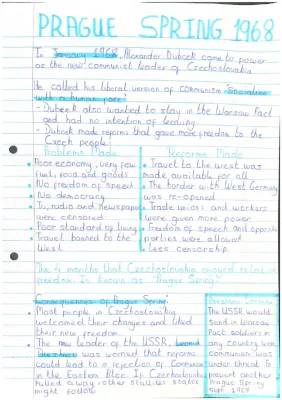 PRAGUE SPRING 1968
In January 1968, Alexander Dubcek came to power
as the new communist leader of Czechoslovakia
He called his liberal version of communism "Socialism
with a human face"
- Dubcek also wanted to stay in the Warsaw Pact
and had no intention of leaving.
- Dubcek made reforms that gave more freedom to the
Czech people!
Problems Made
• Poor economy, very few
fuel, food and goods
• No freedom of speech
• No democracy
• Tv, radio and newspapers
were censored
• Poor standard of living
• Travel banned to the
West
Reforms Made
• Travel to the west was
made available for all
• The border with West Germany
was re-opened
• Trade unions and workers
were given more power
• Freedom of speech and opposition
parties were allowed
• Less censorship
The 4 months that Czechoslovakia enjoyed relative
freedom is known as "Prague Spring"
Consequences of Prague Spring:
• Most people in Czechoslovakia
welcomed their changes and liked
their new freedom.
• The new leader of the USSR, Leonid
Brezhnev was worried that reforms
could lead to a rejection of Communism
in the Eastern Bloc. If Czechoslovakia
pulled away, other satellite states
might follow
Brezhnev Doctrine
The USSR would
send in Warsaw
Pact soldiers in
any country where
communism was
under threat to
prevent another
Prague Spring
Sept. 1968